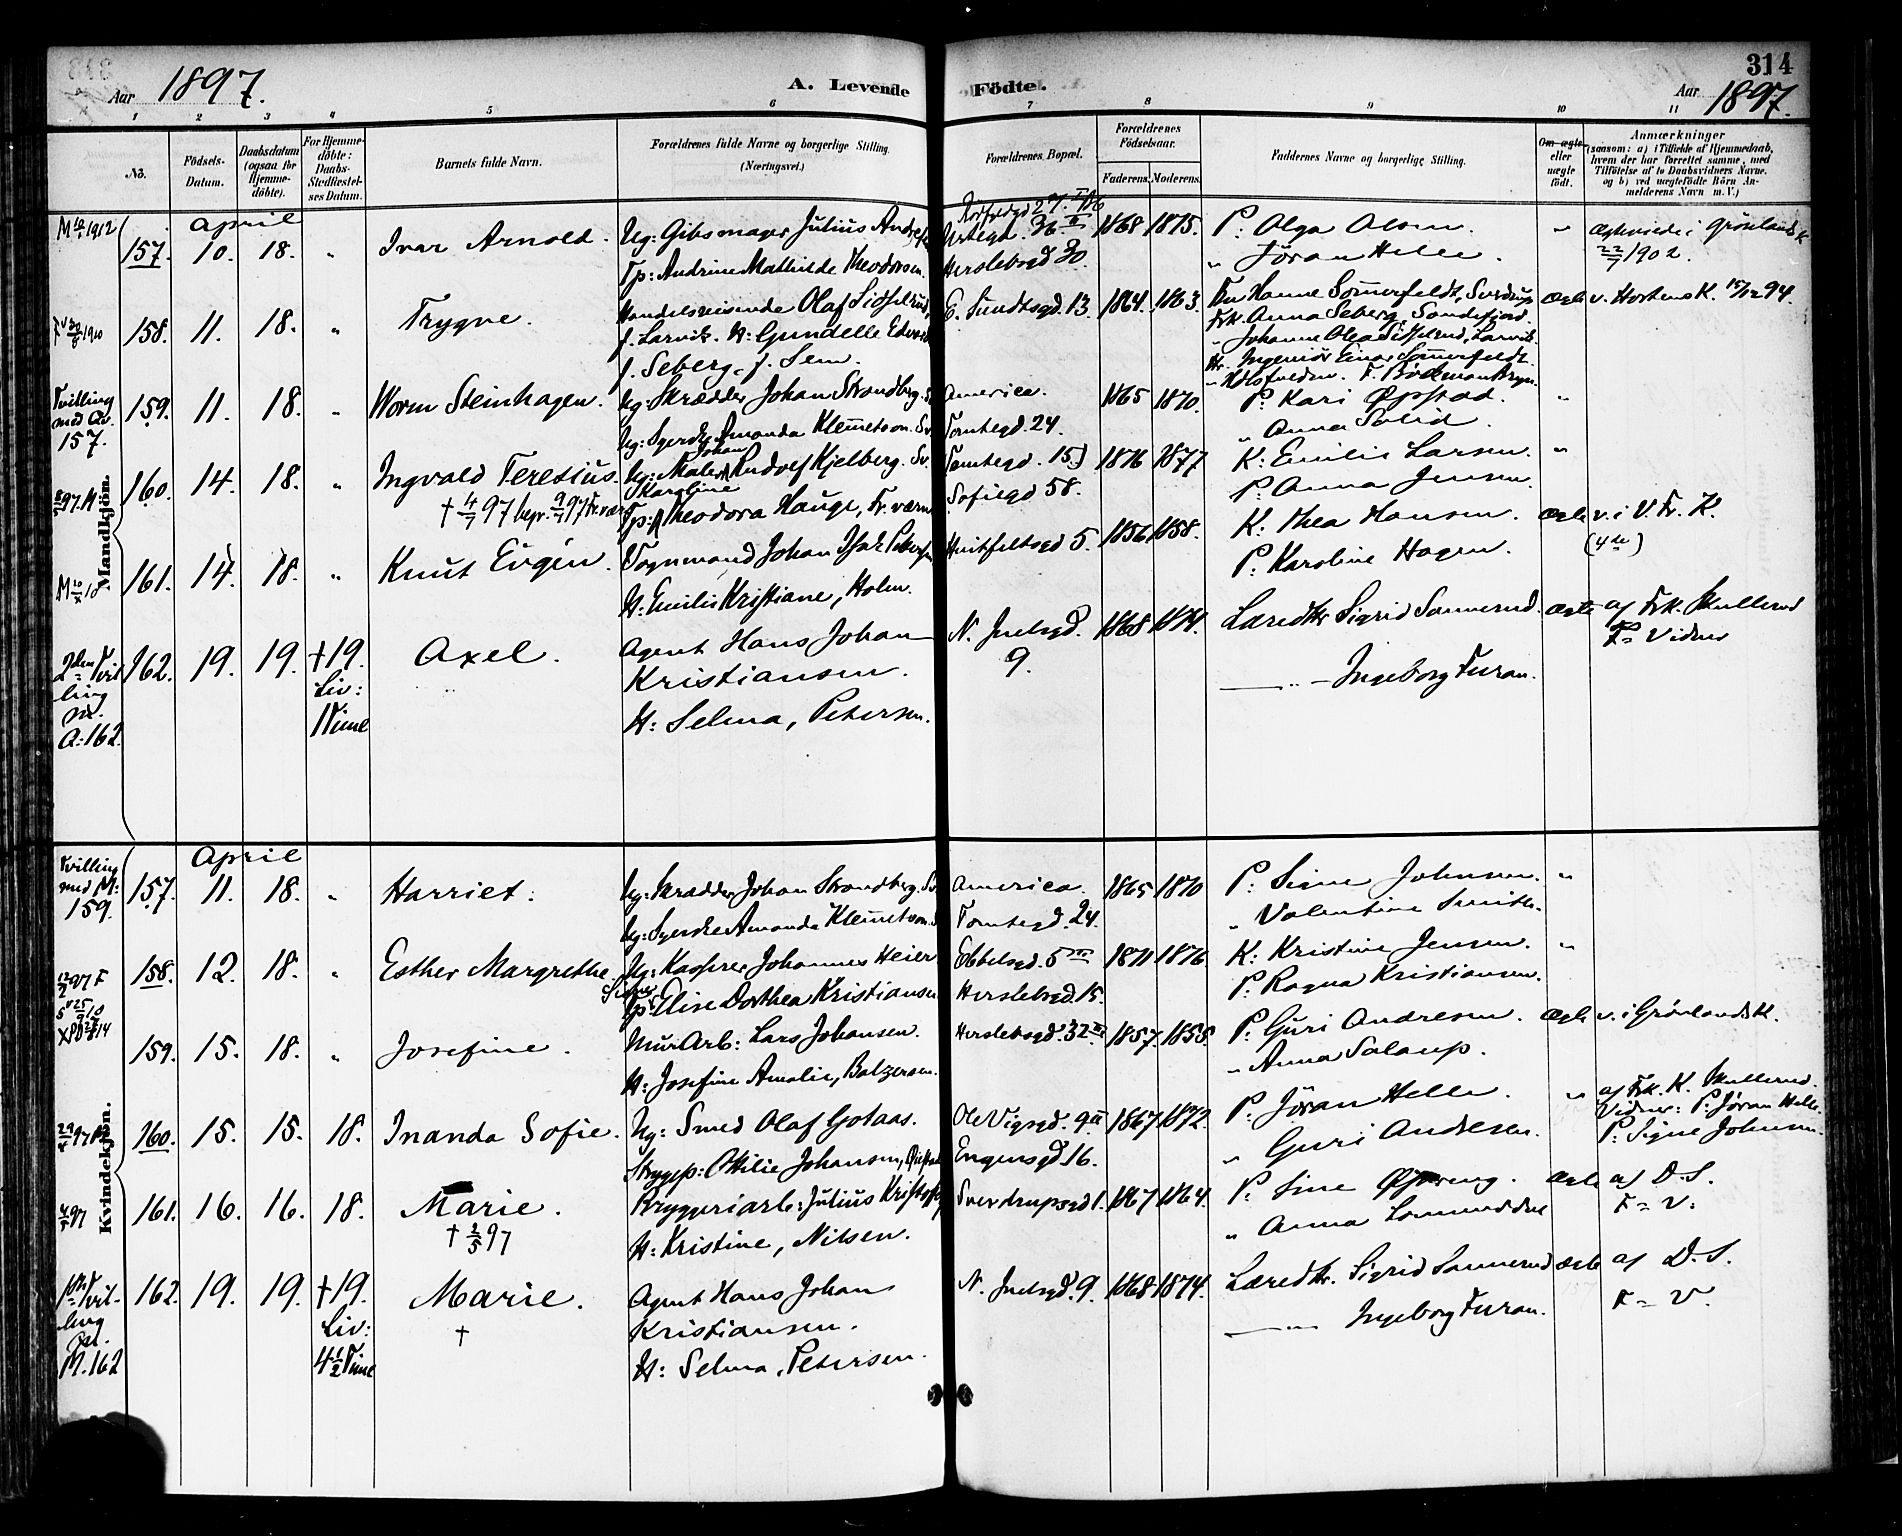 314
Aar 1897.
A. Levende Födte.
Aar 1897.
1 2 3 4 5 6 7 8 9 10 11
No.
Födsels-Datum.
Daabsdatum (ogsaa for Hjemme-döbte).
For Hjemme-döbte: Daabs-Stadfæstel-ses Datum.
Barnets fulde Navn.
Forældrenes fulde Navne og borgerlige Stilling. (Næringsvei.)
Forældrenes Bopæl.
Forældrenes Födselsaar.
Faderens. Moderens.
Faddernes Navne og borgerlige Stilling.
Om ægte eller uægte födt.
Anmærkninger (saasom: a) i Tilfælde af Hjemmedaab, hvem der har forrettet samme, med Tilföielse af to Daabsvidners Navne, og b) ved uægtefödte Börn Anmelderens Navn m. V.)
Mandkjön.
April
157. 10. 18. " Ivar Arnold. Ug: Gibsmager Julius
Tp: Andrine Mathilde Theodorsen.
Urtegd. 36 II
Herslebsgd 30.
1868 1875.
P: Olga Olsen.
" Jöran Helle.
" Ægteviede i Grönlands K
22/7 1902.
158. 11. 18. " Trygve.
Handelsreisende Olaf
f. Larvik. H: Gundelle
f. Seberg, f. Sem.
E. Sundtsgd. 13. 1864. 1863.
Fru Hanne Sömmerfeldt, Sverdrup
Frk. Anna Seberg, Sandefjord
" Johanne Olea Larvik.
Hr. Ingeniör Einar Sömmerfeldt
Ægte v. Hortens K. 94.
Tvilling med Qv. 157.
159. 11. 18. " Worm Steinhagen.
Ug: Skrædder Johan Strandberg.
Ug: Syerske Amanda Klemetson. Sv
America.
Tomtegd. 24.
1865 1870.
P: Kari Öpstad.
" Anna Solid.
"
160. 14. 18. " Ingvald Teresius.
† 4/7 97 begr. 9/7 97
Ug: Maler Johan Rudolf Kjelberg. Sv.
Tp: Karoline Theodora Hauge,
Tomtegd. 15.
Sofiegd 58.
1876 1877
K: Emilie Larsen.
P: Anna Jensen.
"
161. 14. 18. " Knut Eugén.
Vognmand Johan
H: Emilie Kristiane, Holm.
Huitfeltsgd 5. 1856 1858.
K: Thea Hansen.
P: Karoline Hagen.
Ægte v. i V. Fr. K.
2den Tvilling
A: 162.
162. 19. 19. † 19. Liv: 1 Time
Axel.
Agent Hans Johan
Kristiansen.
H: Selma, Petersen.
N. Juelsgd. 9.
1868 1874.
Læredtr. Sigrid Sannerud.
— " — Ingeborg Furan.
Ægte af Frk. Skullerud
F = Vidner
Kvindekjön.
April
Tvilling med M: 159.
157. 11. 18. " Harriet.
Ug: Skrædder Johan Strandberg. Sv
Ug: Syerske Amanda Klemetson.
America.
Tomtegd. 24.
1865 1870
P: Signe Johnsen.
" Valentine Smith.
"
158. 12. 18. " Esther Margrethe
Signe
Ug: Kasserer Johannes Heier
Tp: Elise Dorthea Kristiansen
Ebbelsgd. 5
Herslebsgd. 15.
1871 1876.
K: Kristine Jensen.
P: Ragna Kristiansen.
"
159. 15. 18. " Josefine.
MurArb: Lars Johansen.
H: Josefine Amalie, Balzersen.
Herslebsgd. 32 1857. 1858.
P: Guri Andresen.
" Anna Solaup.
Ægte v. i Grönlands K.
160. 15. 15. 18. Inanda Sofie.
Ug: Smed Olaf Gotaas.
Strygep: Ottilie Johansen,
Ole Vigsgd. 9 II
Engensgd 16.
1867 1872.
P: Jöran Helle.
" Guri Andresen.
" af Frk. K. Skullerud.
Vidner: P: Jöran Helle.
P: Signe Johnsen.
161. 16. 16. 18. Marie.
† 2/5 97
Bryggeriarb: Julius
H: Kristine, Nilsen.
Sverdrupsgd 1. 1867 1864.
P: Sine
" Anna
Ægte af D. S.
F = V.
1ste Tvilling
M. 162
162. 19. 19. † 19. Liv: 4 1/2 Time
Marie.
†
Agent Hans Johan
Kristiansen.
H: Selma, Petersen.
N. Juelsgd. 9. 1868 1874.
Læredtr. Sigrid Sannerud
— " — Ingeborg Furan.
Ægte af D. S.
F = V.